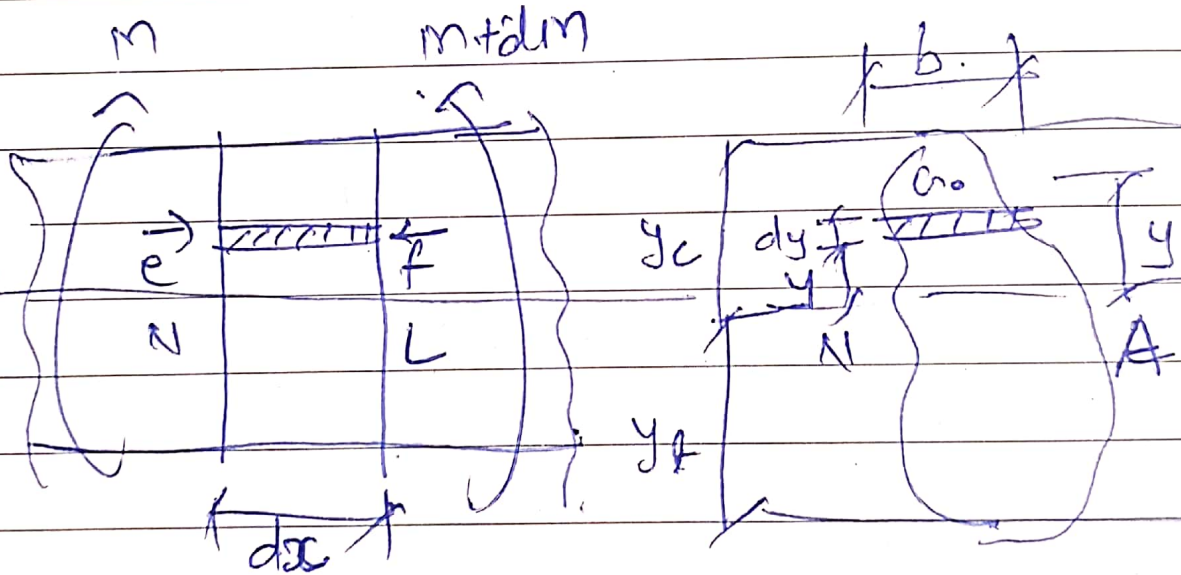 M
M+dM
b.
G.
e
f
yc
dy
y
y
N
L
N
A
yt
dx